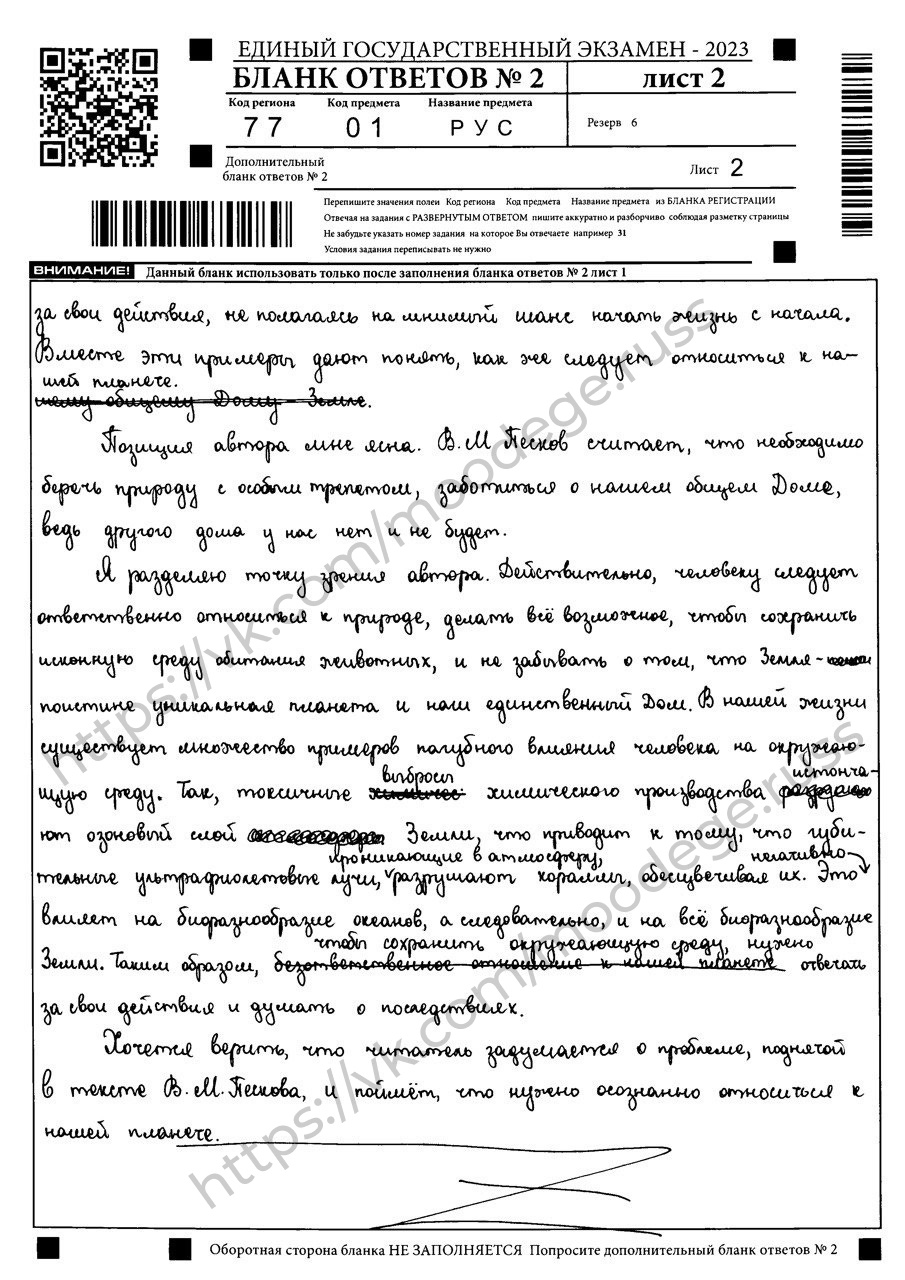 ЕДИНЫЙ ГОСУДАРСТВЕННЫЙ ЭКЗАМЕН - 2023
БЛАНК ОТВЕТОВ № 2
лист 2
Код региона Код предмета Название предмета
77 01 РУС
Резерв 6
Дополнительный
бланк ответов № 2
Лист 2
Перепишите значения полей Код региона Код предмета Название предмета из БЛАНКА РЕГИСТРАЦИИ
Отвечая на задания с РАЗВЕРНУТЫМ ОТВЕТОМ пишите аккуратно и разборчиво соблюдая разметку страницы
Не забудьте указать номер задания на которое Вы отвечаете например 31
Условия задания переписывать не нужно
ВНИМАНИЕ! Данный бланк использовать только после заполнения бланка ответов № 2 лист 1
за свои действия, не полагаясь на мнимый шанс начать жизнь с начала.
Вместе эти примеры дают понять, как же следует относиться к на-
шей планете.
шему общему Дому - Земле.
Позиция автора мне ясна. В.М Песков считает, что необходимо
беречь природу с особым трепетом, заботиться о нашем общем Доме,
ведь другого дома у нас нет и не будет.
Я разделяю точку зрения автора. Действительно, человеку следует
ответственно относиться к природе, делать всё возможное, чтобы сохранить
исконную среду обитания животных, и не забывать о том, что Земля -
поистине уникальная планета и наш единственный Дом. В нашей жизни
существует множество примеров пагубного влияния человека на окружаю-
выбросы истонча-
щую среду. Так, токсичные химического производства
ют озоновый слой Земли, что приводит к тому, что губи-
проникающие в атмосферу, негативно
тельные ультрафиолетовые лучи, разрушают кораллы, обесцвечивая их. Это
влияет на биоразнообразие океанов, а следовательно, и на всё биоразнообразие
чтобы сохранить окружающую среду, нужно
Земли. Таким образом, безответственное отношение к нашей планете отвечать
за свои действия и думать о последствиях.
Хочется верить, что читатель задумается о проблеме, поднятой
в тексте В.М.Пескова, и поймёт, что нужно осознанно относиться к
нашей планете.
https://vk.com/moodege.russ
https://vk.com/moodege.russ
Оборотная сторона бланка НЕ ЗАПОЛНЯЕТСЯ Попросите дополнительный бланк ответов № 2